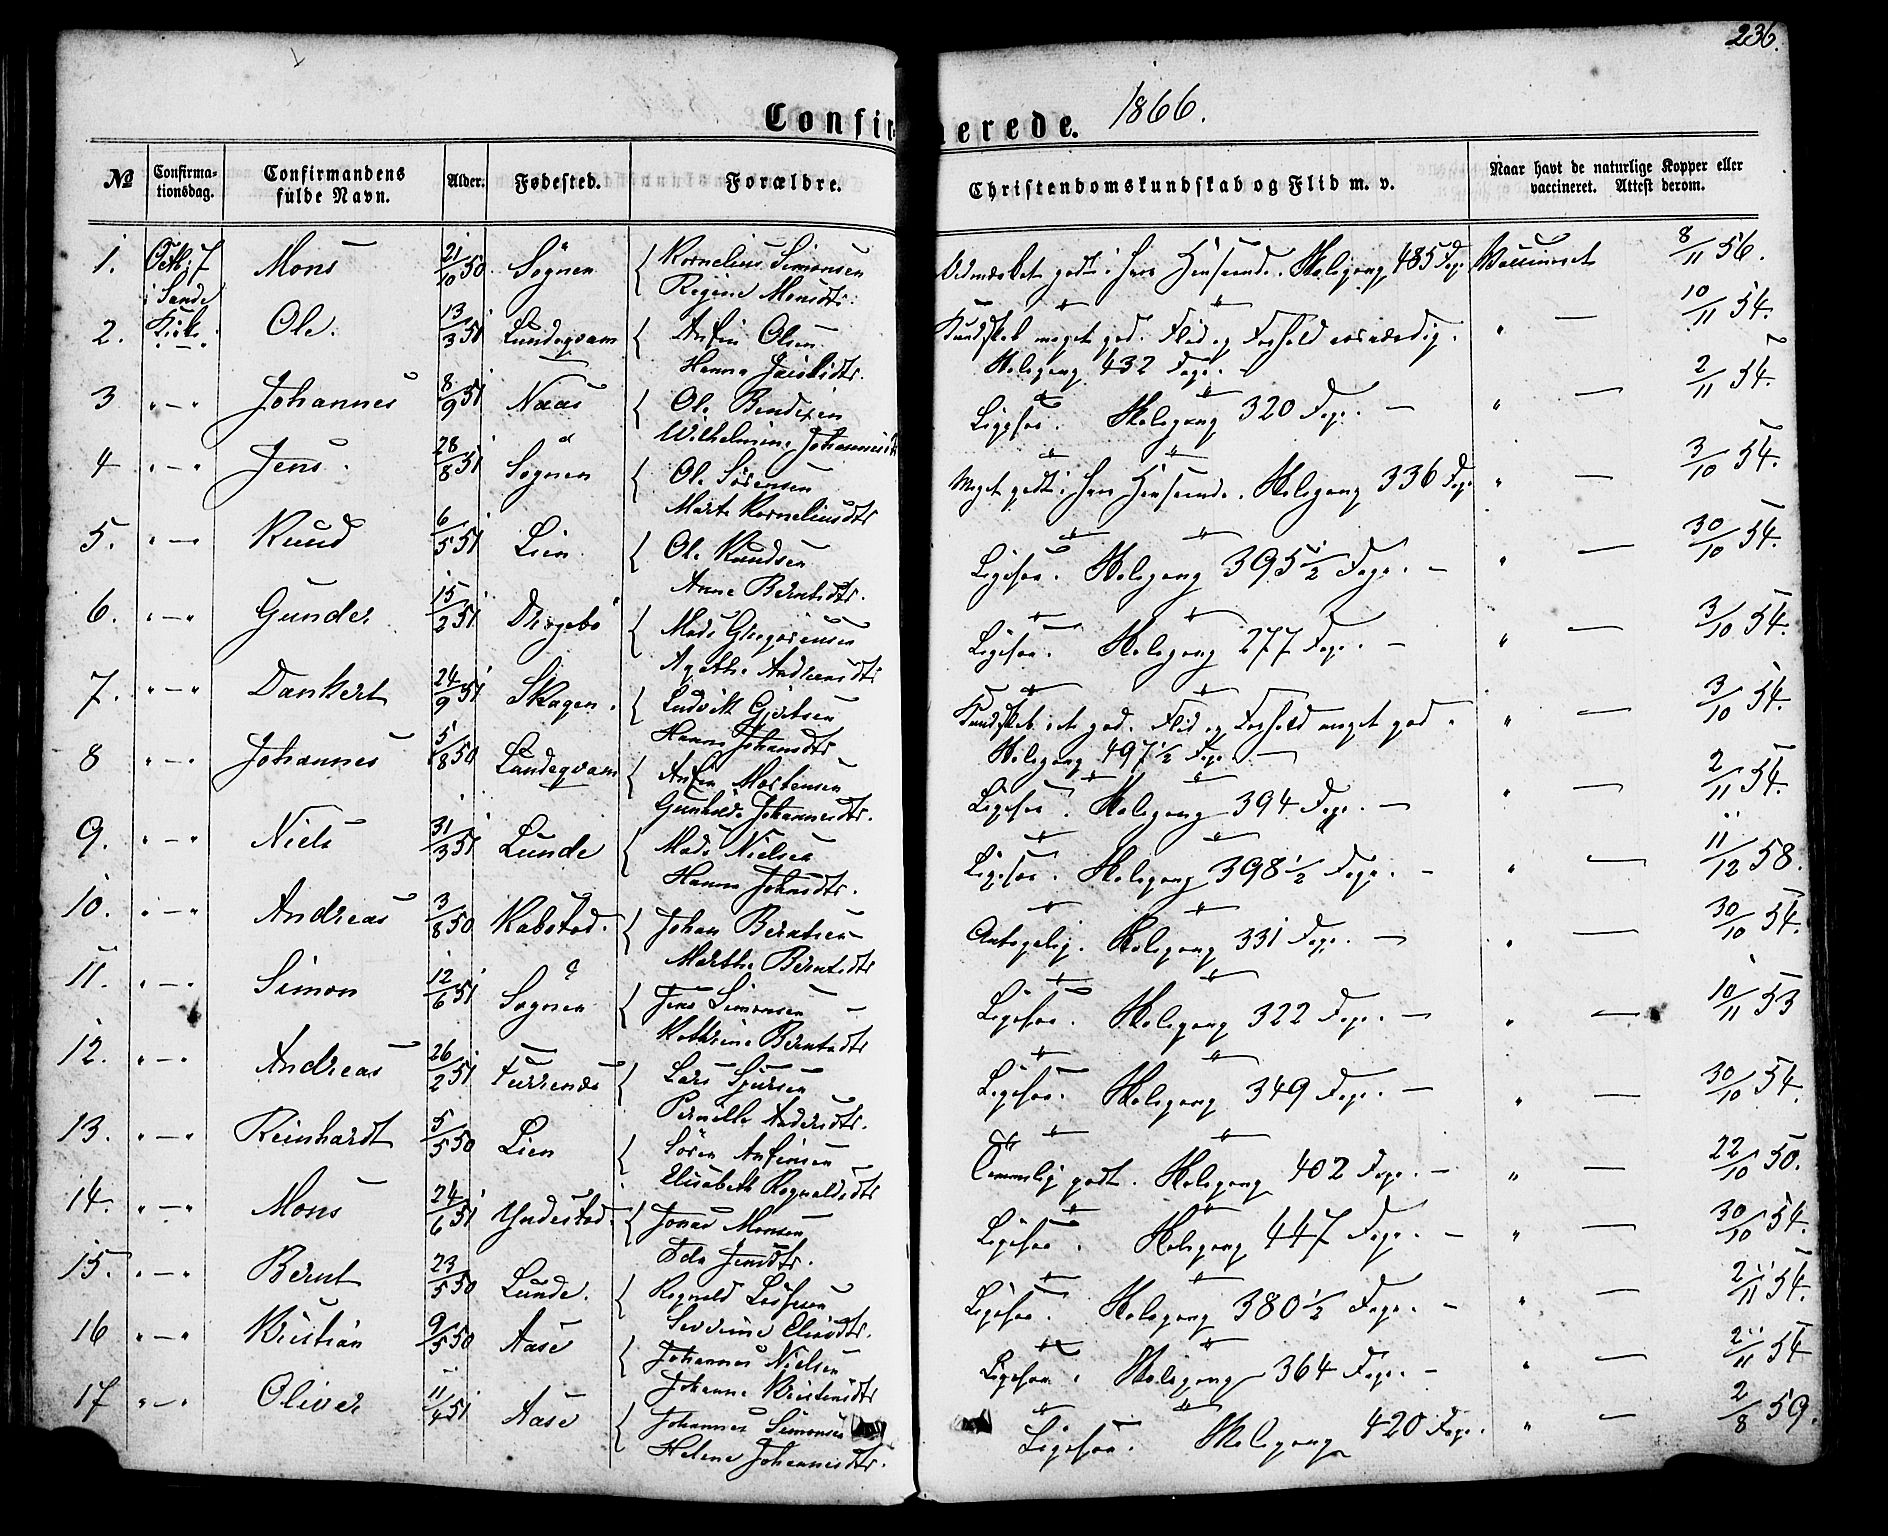 236.
Confirmerede. 1866.
№ Confirmationsdag. Confirmandens fulde Navn. Alder. Fødested. Forældre. Christendomskundskab og Flid m. v. Naar havt de naturlige Kopper eller vaccineret. Attest derom.
1. Octb: 7 i Sande Kirke. Mons 21/10 50 Sognen { Kornelius Simonsen Udmærket godt i hver Henseende. Skolegang 485 Dage Vaccineret 8/11 56.
Regine Monsdtr.
2. " — " Ole. 13/3 51 Lundeqvam { Anfin Olsen Kundskab meget god. Flid og Forhold roesværdig. " — 10/11 54.
Hanne Jacobsdtr. Skolegang 432 Dage. —
3 " — " Johannes 8/9 51 Naas { Ole Bendixen Ligesaa. Skolegang 320 Dage. — " — 2/11 54.
Wilhelmine Johannesdtr
4 " — " Jens. 28/8 51 Sognen { Ole Sørensen Meget godt i hver Henseende. Skolegang 336 Dage " — 3/10 54.
Marte Korneliusdtr
5. " — " Knud 6/5 51 Lien { Ole Knudsen Ligesaa. Skolegang 395 1/2 Dage. — " — 30/10 54.
Anne Berntsdtr.
6. " — " Gunder 15/2 51 Dingebø { Mads Gregoriusen Ligesaa. Skolegang 277 Dage. — " — 3/10 54.
Agathe Andreasdtr
7. " — " Dankert 24/9 51 Skagen. { Ludvik Gjertsen Kundskab ret god. Flid og Forhold meget god. " — 3/10 54.
Hanne Johansdtr Skolegang 497 1/2 Dage —
8 " — " Johannes 5/8 50 Lundeqvam { Anfin Mortensen Ligesaa. Skolegang 394 Dage. — " — 2/11 54.
Gunhilde Johannesdtr.
9. " — " Niels 31/3 51 Lunde { Mads Nielsen Ligesaa. Skolegang 398 1/2 Dage. — " — 11/12 58.
Hanne Johnsdtr.
10. " — " Andreas 3/8 50 Kalstad. { Johan Berntsen Antagelig. Skolegang 331 Dage. — " — 30/10 54.
Marthe Berntsdtr
11. " — " Simon 12/6 51 Sognen { Jens Simonsen Ligesaa. Skolegang 322 Dage. — " — 10/11 53
Kathrine Berntsdtr
12. " — " Andreas 26/2 51 Furrenæs { Lars Sjursen Ligesaa. Skolegang 349 Dage. — " — 30/10 54.
Pernille Andersdtr.
13. " — " Reinhardt 5/5 50 Lien { Sören Anfinsen Temmelig godt. Skolegang 402 Dage. — " — 22/10 50.
Elisabeth Rognaldsdtr
14. " — " Mons 24/6 51 Yndestad. { Jonas Monsen Ligesaa. Skolegang 447 Dage. — " — 30/10 54.
Eda Jensdtr.
15. " — " Bernt 23/5 50 Lunde. { Rognald Ligesaa. Skolegang 380 1/2 Dage. — " — 2/11 54.
Severine Eliasdtr.
16 " — " Kristian 9/5 50 Aase { Johannes Nielsen Ligesaa. Skolegang 364 Dage. — " — 2/11 54
Johanne Kristensdtr
17 " — " Oliver 11/4 51 Aase { Johannes Simonsen Ligesaa. Skolegang 420 Dage. " — 2/8 59.
Helene Johannesdtr.